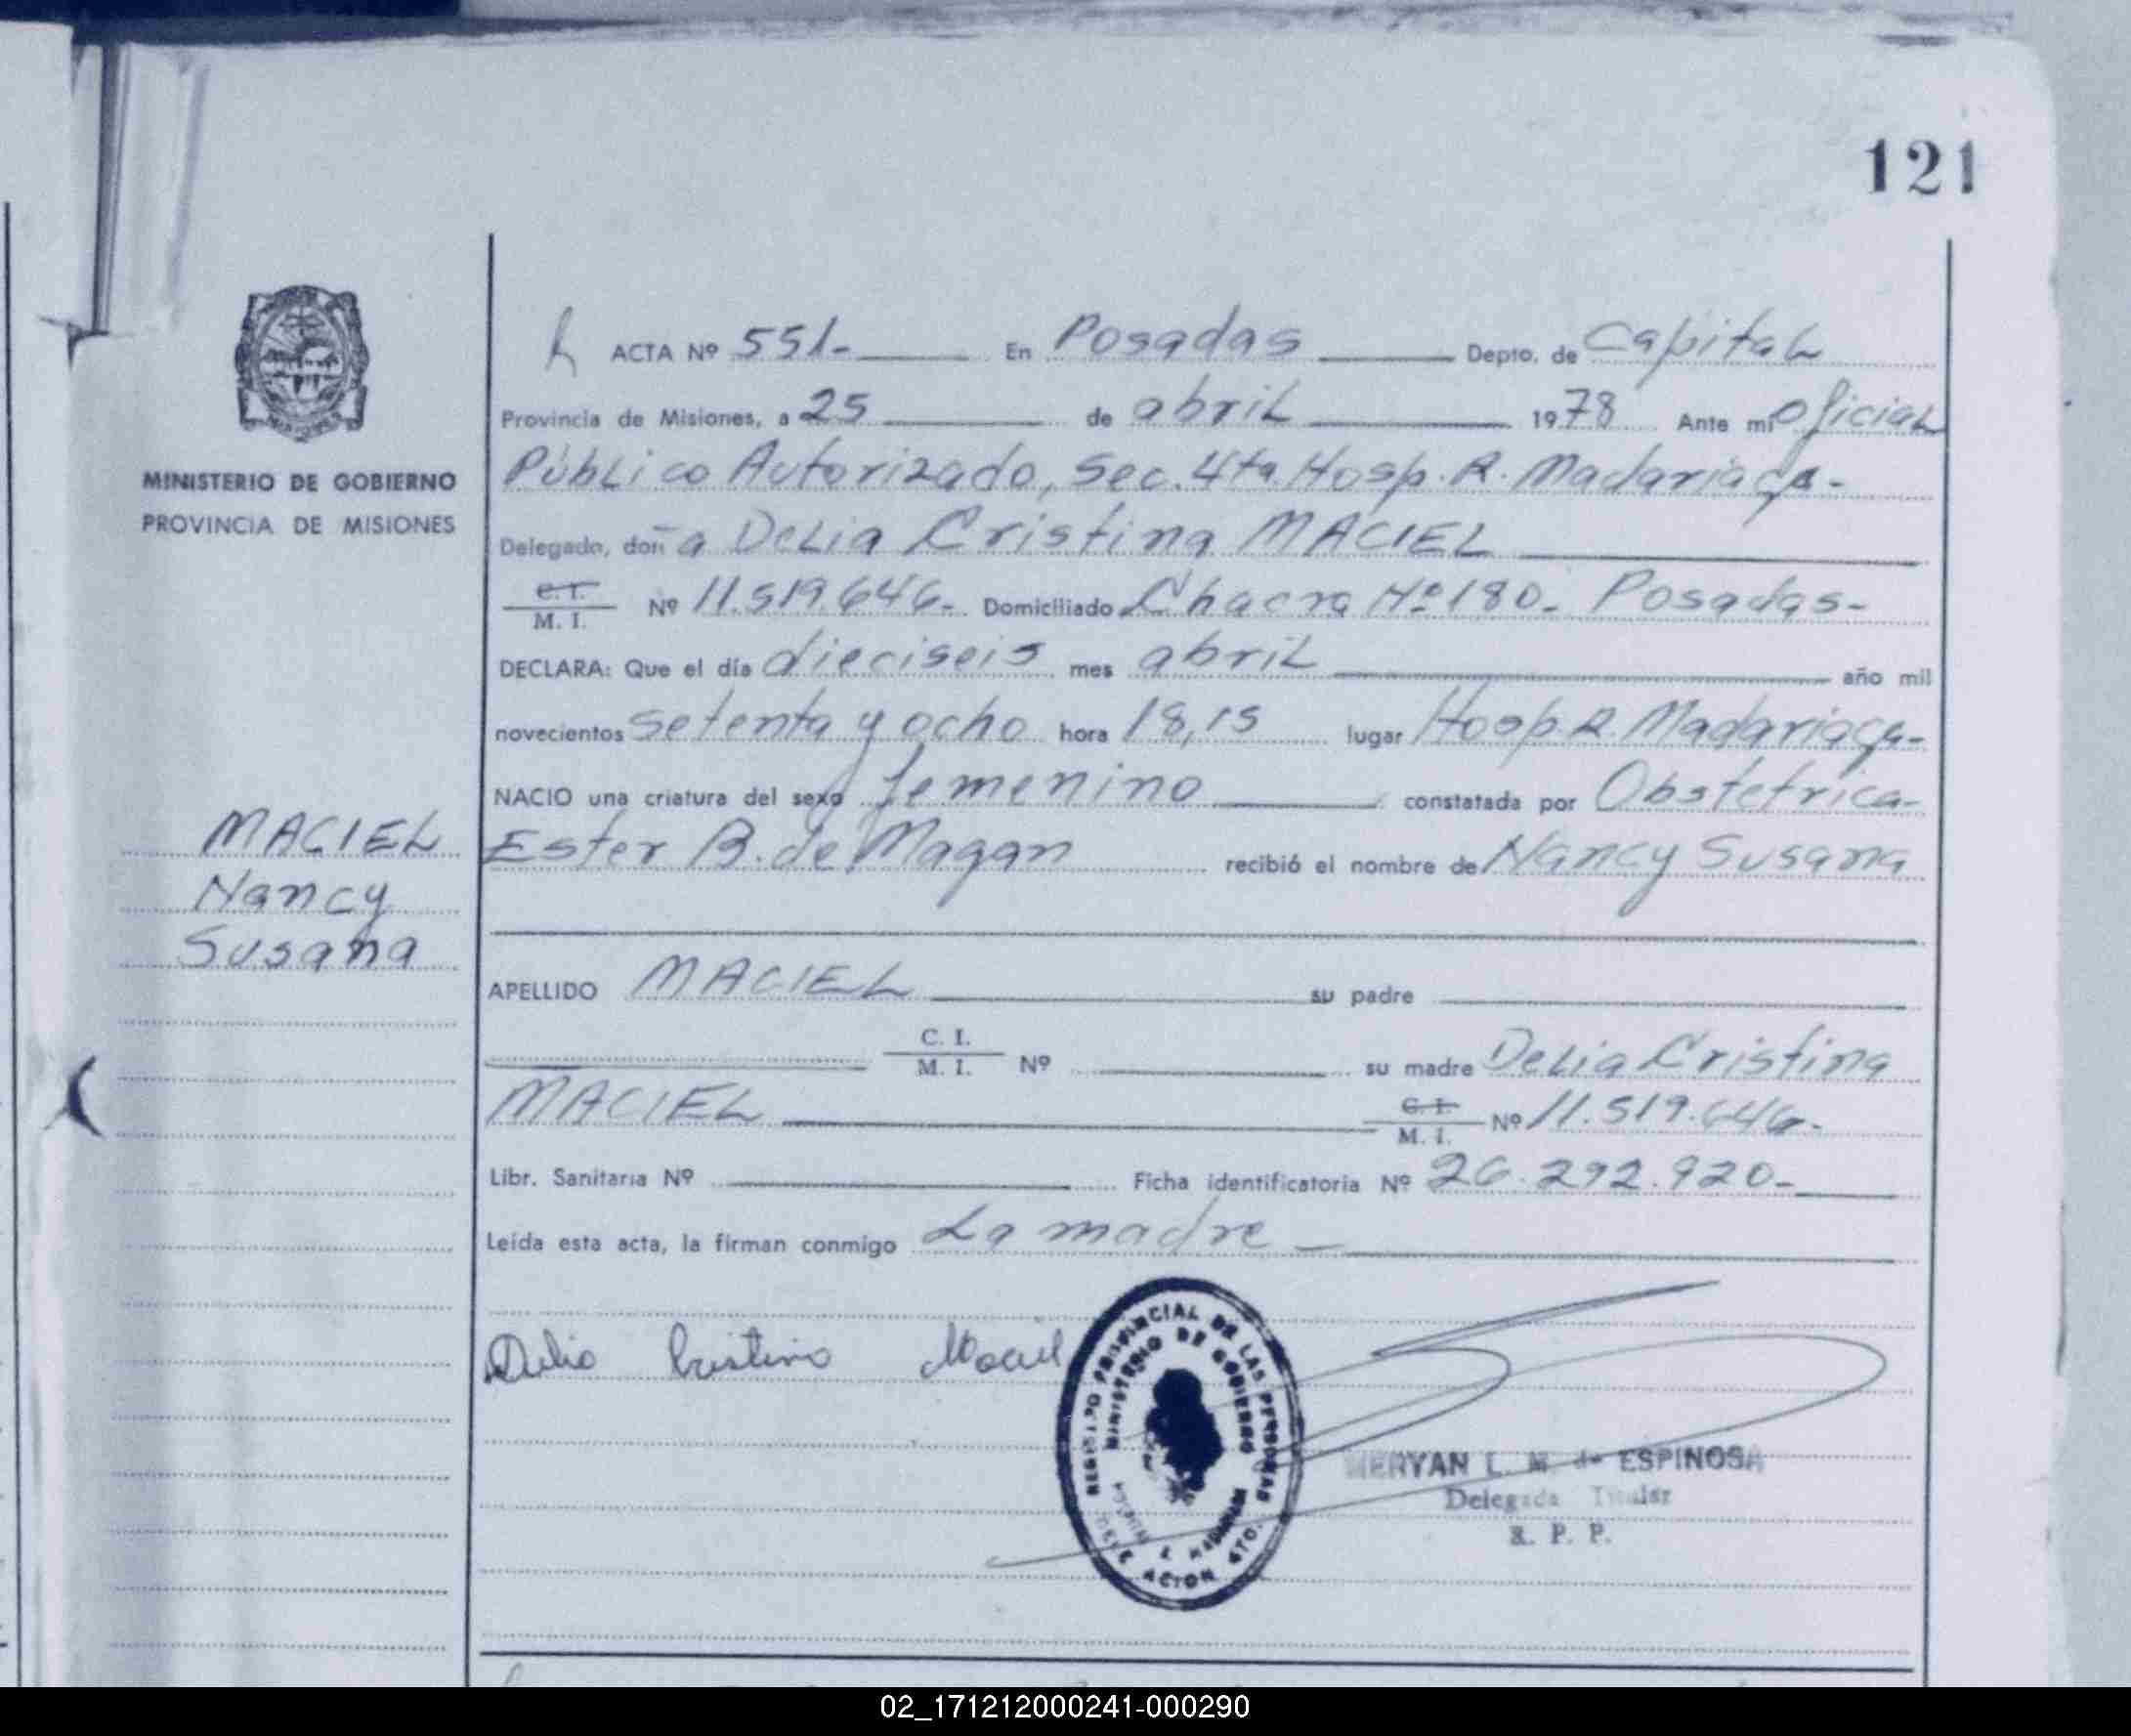 121
ACTA Nº 551- En Posadas Depto. de Capital
Provincia de Misiones, a 25 de abril 1978 Ante mi Oficial
MINISTERIO DE GOBIERNO
PROVINCIA DE MISIONES
Público Autorizado, Sec. 4ta. Hosp. R. Madariaga.-
Delegado, doña Delia Cristina MACIEL
C.I. M. I. Nº 11.519.646- Domiciliado Chacra Nº 180- Posadas-
DECLARA: Que el día dieciseis mes abril año mil
novecientos setenta y ocho hora 18,15 lugar Hosp. R. Madariaga-
NACIO una criatura del sexo femenino constatada por Obstetrica-
MACIEL
Nancy
Susana
Ester B. de Magan recibió el nombre de Nancy Susana
APELLIDO MACIEL su padre
C. I. M. I. Nº su madre Delia Cristina
MACIEL C.I. M. I. Nº 11.519.646-
Libr. Sanitaria Nº Ficha identificatoria Nº 26.292.920-
Leída esta acta, la firman conmigo La madre
Delia Cristina Maciel
REGISTRO PROVINCIAL DE LAS PERSONAS
MINISTERIO DE GOBIERNO
L. M. de ESPINOSA
Delegada Titular
R. P. P.
02_171212000241-000290